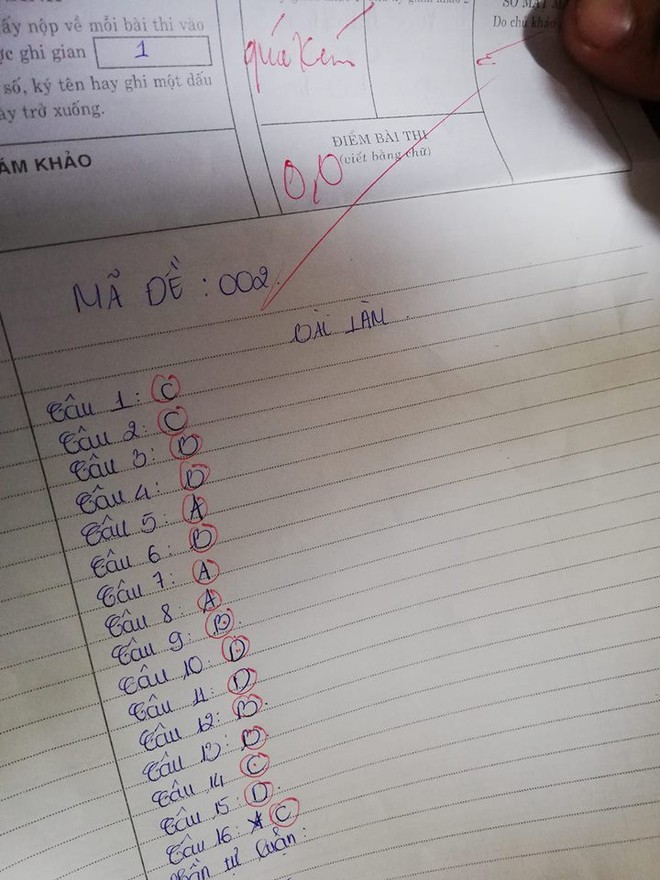 ấy nộp về mỗi bài thi vào
ợc ghi gian 1
số, ký tên hay ghi một dấu
ày trở xuống.
ÁM KHẢO
quá kém
ĐIỂM BÀI THI
(viết bằng chữ)
0,0
SỐ MẬT MÃ
Do chủ khảo
MÃ ĐỀ : 002.
BÀI LÀM
Câu 1: C
Câu 2: C
Câu 3: D
Câu 4: D
Câu 5: A
Câu 6: B
Câu 7: A
Câu 8: A
Câu 9: B
Câu 10: D
Câu 11: D
Câu 12: B
Câu 13: D
Câu 14 C
Câu 15: D
Câu 16: C
Phần tự luận: